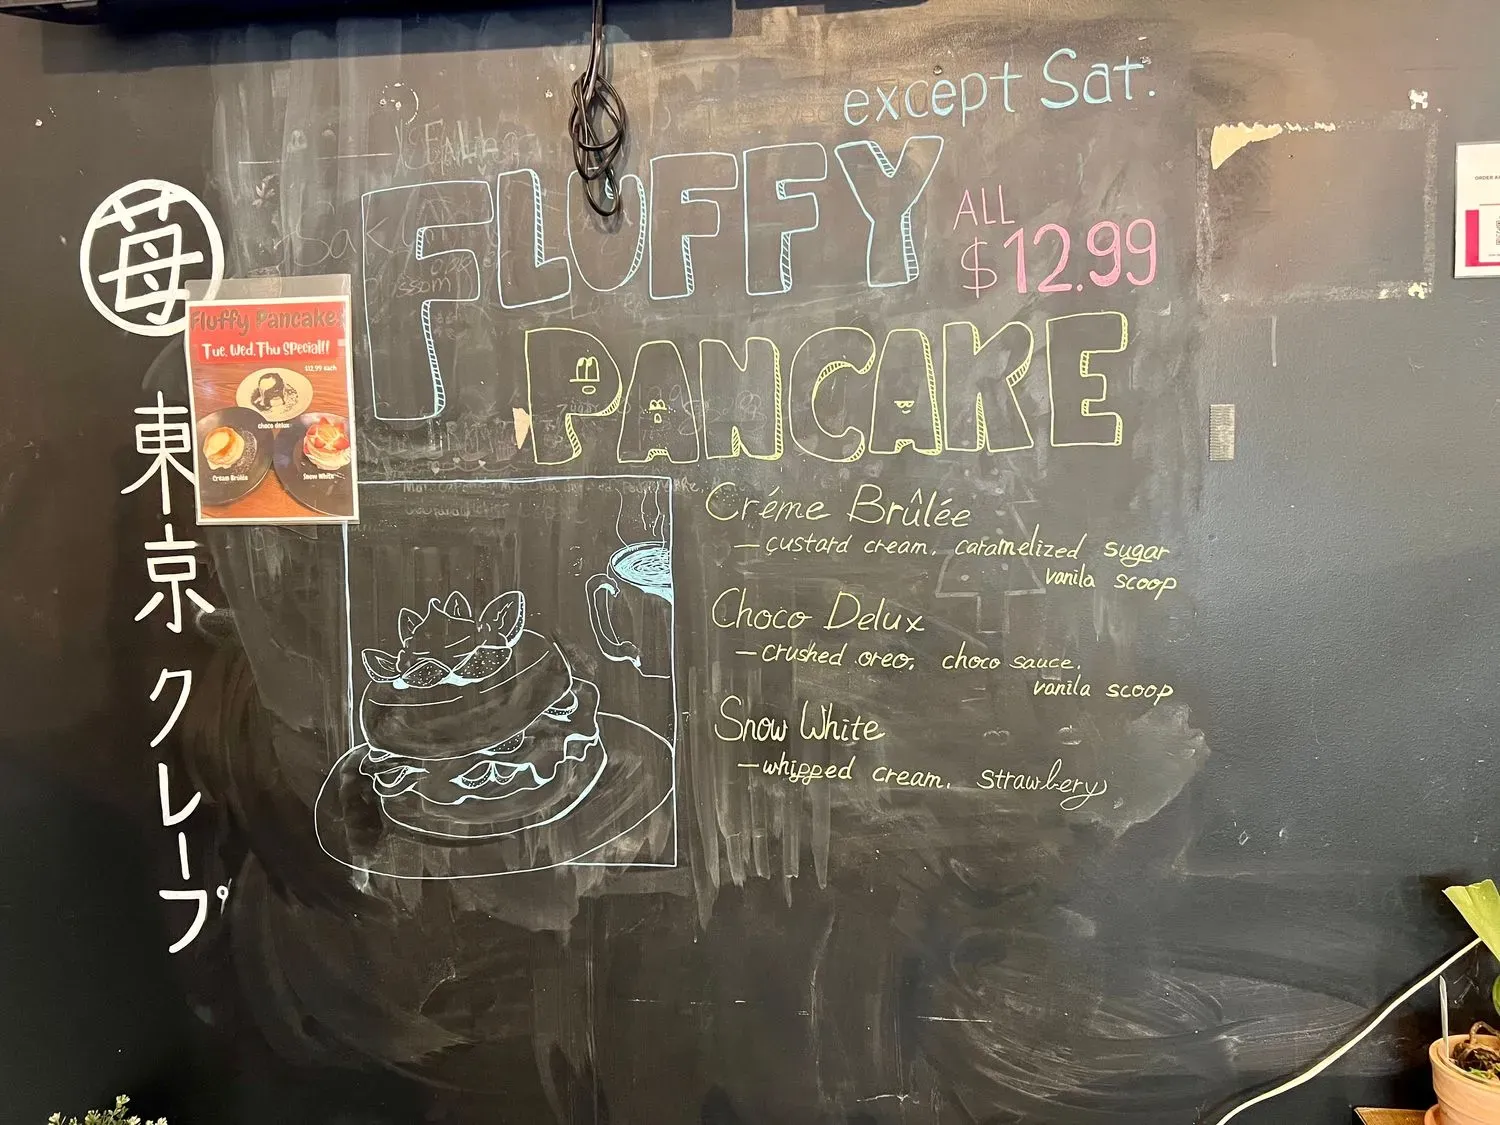 except Sat.
FLUFFY
ALL
$12.99
PANCAKE
苺
東京クレープ
Fluffy Pancakes
Tue, Wed, Thu Special!!
$12.99 each
choco delux
Cream Brûlée
Snow White
Créme Brûlée
— custard cream, caramelized sugar
vanila scoop
Choco Delux
— crushed oreo, choco sauce,
vanila scoop
Snow White
— whipped cream, strawbery
ORDER